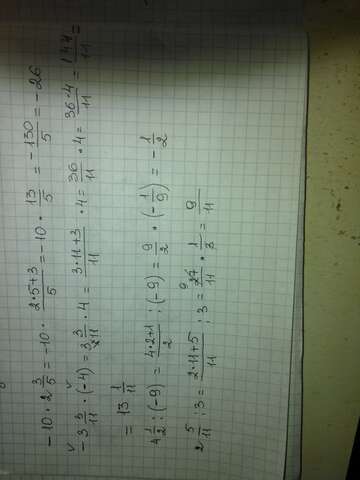 -10 · 2 3/5 = -10 · (2·5+3)/5 = -10 · 13/5 = -130/5 = -26
-3 3/11 · (-4) = 3 3/11 · 4 = (3·11+3)/11 · 4 = 36/11 · 4 = (36·4)/11 = 144/11 =
= 13 1/11
4 1/2 : (-9) = (4·2+1)/2 : (-9) = 9/2 · (-1/9) = -1/2
2 5/11 : 3 = (2·11+5)/11 : 3 = 27/11 · 1/3 = 9/11